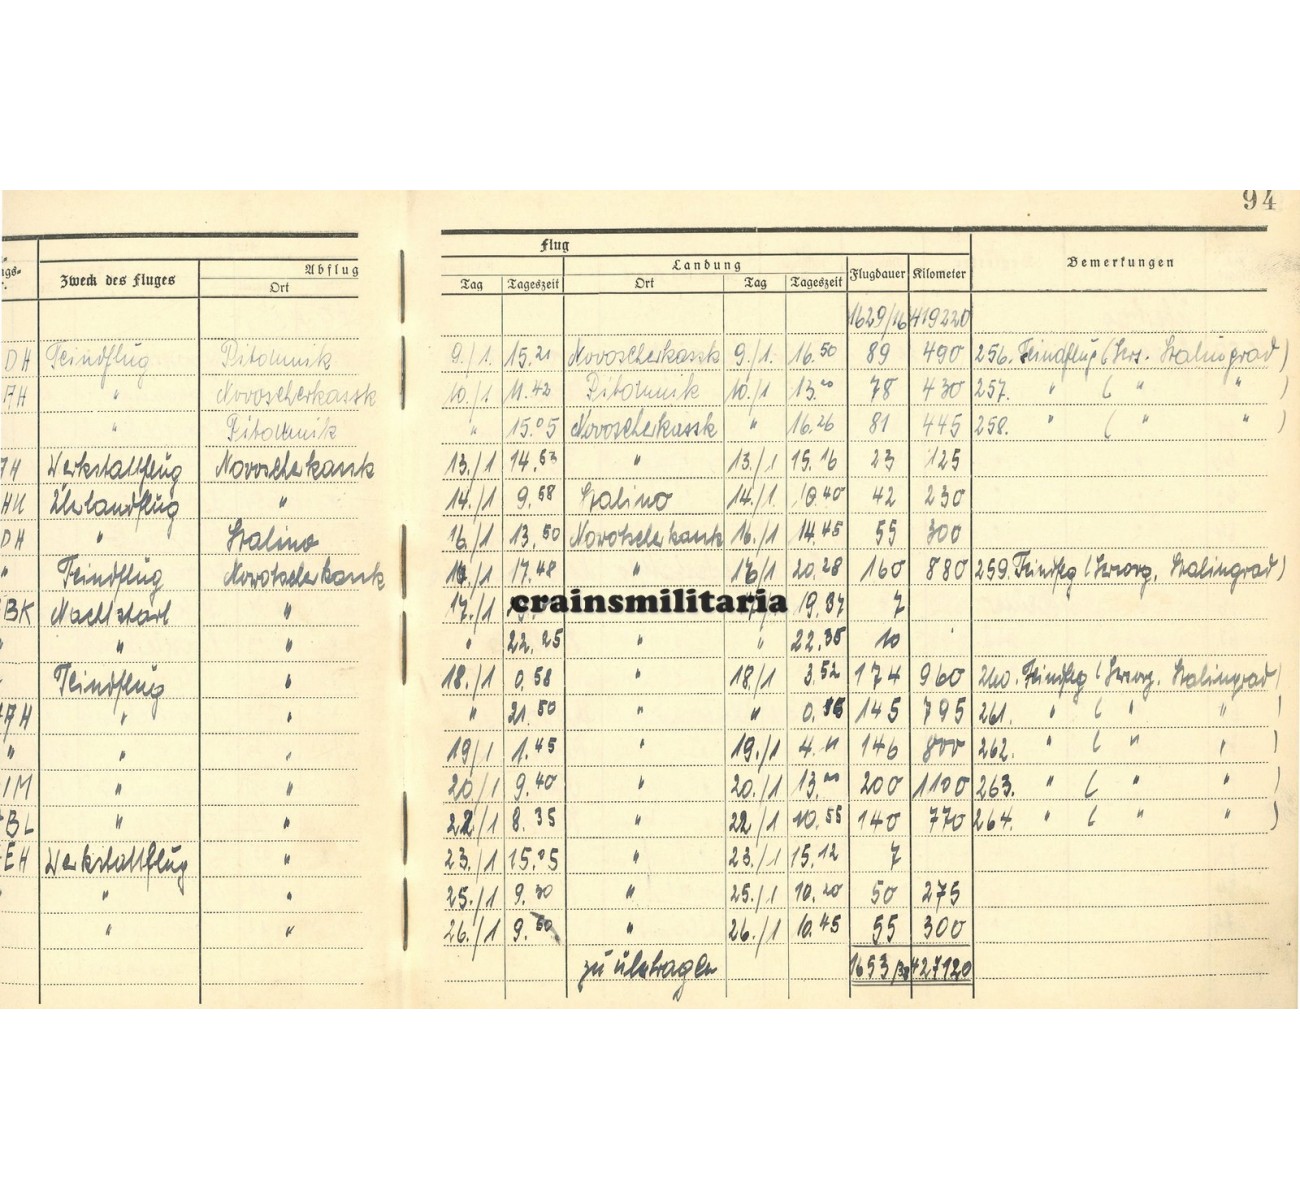 94
Flug
Zweck des Fluges Abflug Landung Flugdauer Kilometer Bemerkungen
Ort Tag Tageszeit Ort Tag Tageszeit
1629/16 419220
DH Feindflug Pitomnik 9./1. 15.21 Novoscherkassk 9./1. 16.50 89 490 256. Feindflug (Vers. Stalingrad)
AH " Novoscherkassk 10./1 11.42 Pitomnik 10./1 13.00 78 430 257. " ( " " )
" Pitomnik " 15.05 Novoscherkassk " 16.26 81 445 258. " ( " " )
AH Werkstattflug Novoscherkassk 13./1 14.53 " 13./1 15.16 23 125
Überlandflug " 14./1 9.58 Stalino 14./1. 10.40 42 230
DH " Stalino 16./1 13.50 Novotscherkassk 16./1 14.45 55 300
" Feindflug Novotscherkassk 17.48 " 20.28 160 880 259. Feindflg (Versorg. Stalingrad)
BK Nachtstart " 17./1 crainsmilitaria 19.37 7
" " " " 22.25 " " 22.35 10
Feindflug " 18./1 0.58 " 18./1 3.52 174 960 260. Feindflg (Versorg. Stalingrad)
AH " " " 21.50 " " 145 795 261. " ( " " )
" " " 19/1 1.45 " 19./1 4.11 146 800 262. " ( " " )
IM " " 20./1 9.40 " 20./1 13.00 200 1100 263. " ( " " )
BL " " 22/1 8.35 " 22/1 10.55 140 770 264. " ( " " )
EH Werkstattflug " 23./1 15.05 " 23./1 15.12 7
" " 25./1 9.30 " 25./1 10.20 50 275
" " 26./1 9.50 " 26./1 10.45 55 300
zu übertragen 1653/38 427120